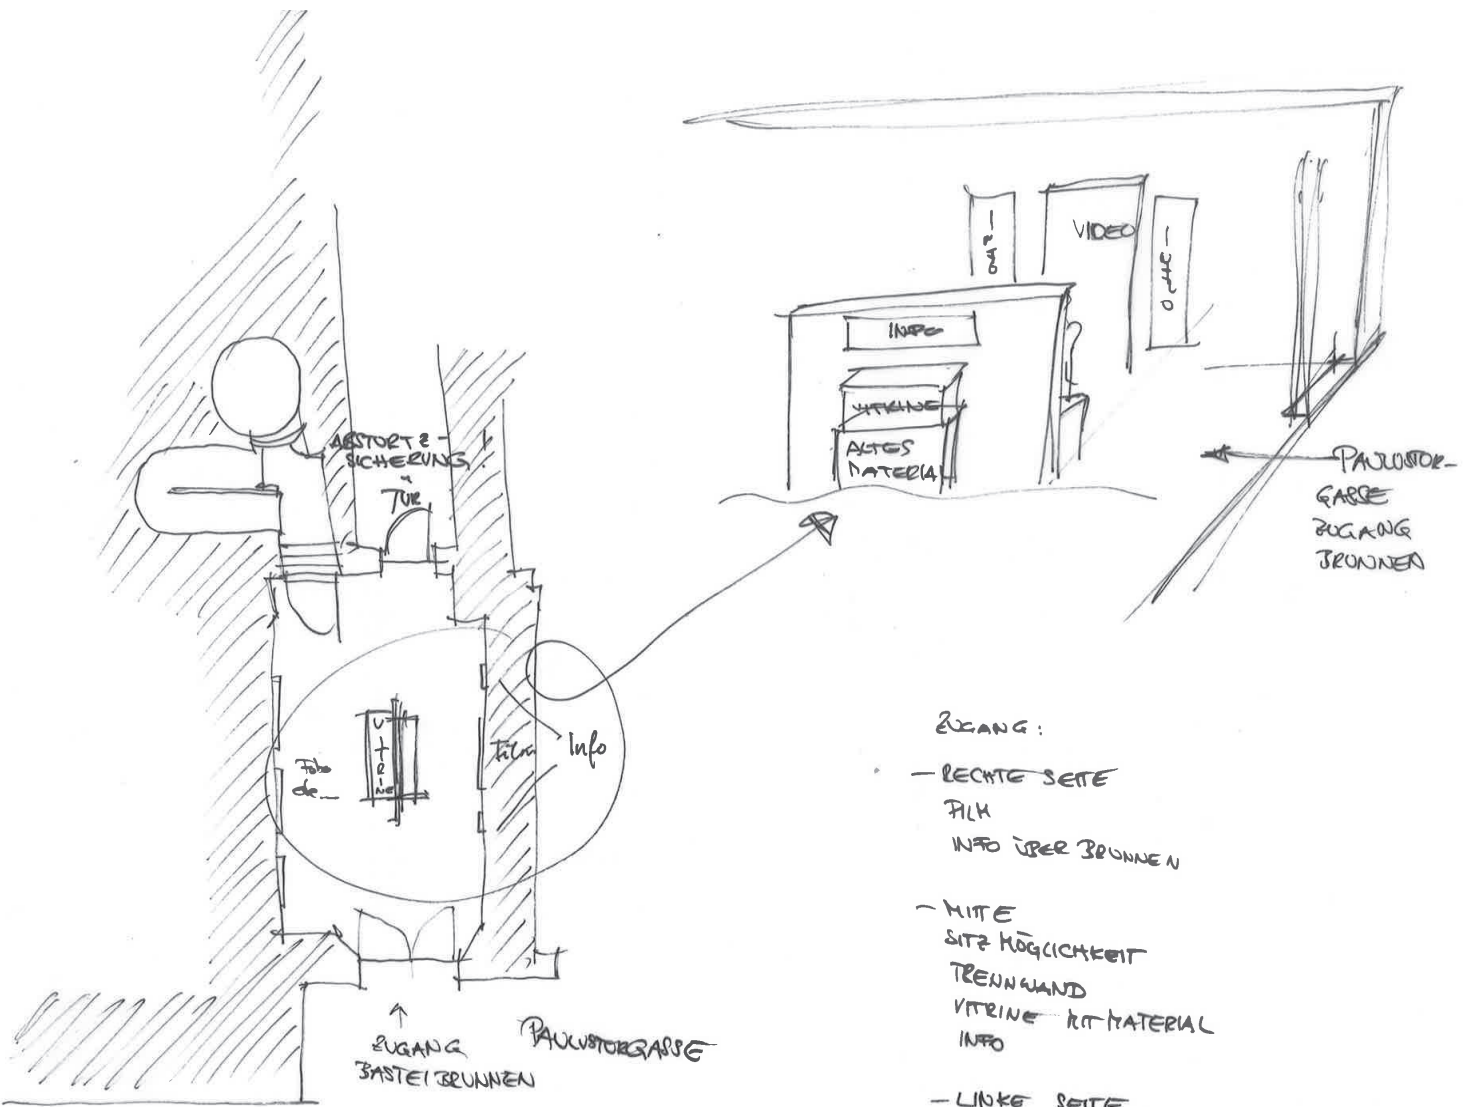 ABSTURTZ-
SICHERUNG
u
TÜR
VITRINE
Film
Info
ZUGANG
BASTEIBRUNNEN
PAULUSTORGASSE
INFO
VIDEO
INFO
INFO
VITRINE
ALTES
MATERIAL
PAULUSTOR-
GASSE
ZUGANG
BRUNNEN
ZUGANG:
- RECHTE SEITE
FILM
INFO ÜBER BRUNNEN
- MITTE
SITZ MÖGLICHKEIT
TRENNWAND
VITRINE MIT MATERIAL
INFO
- LINKE SEITE